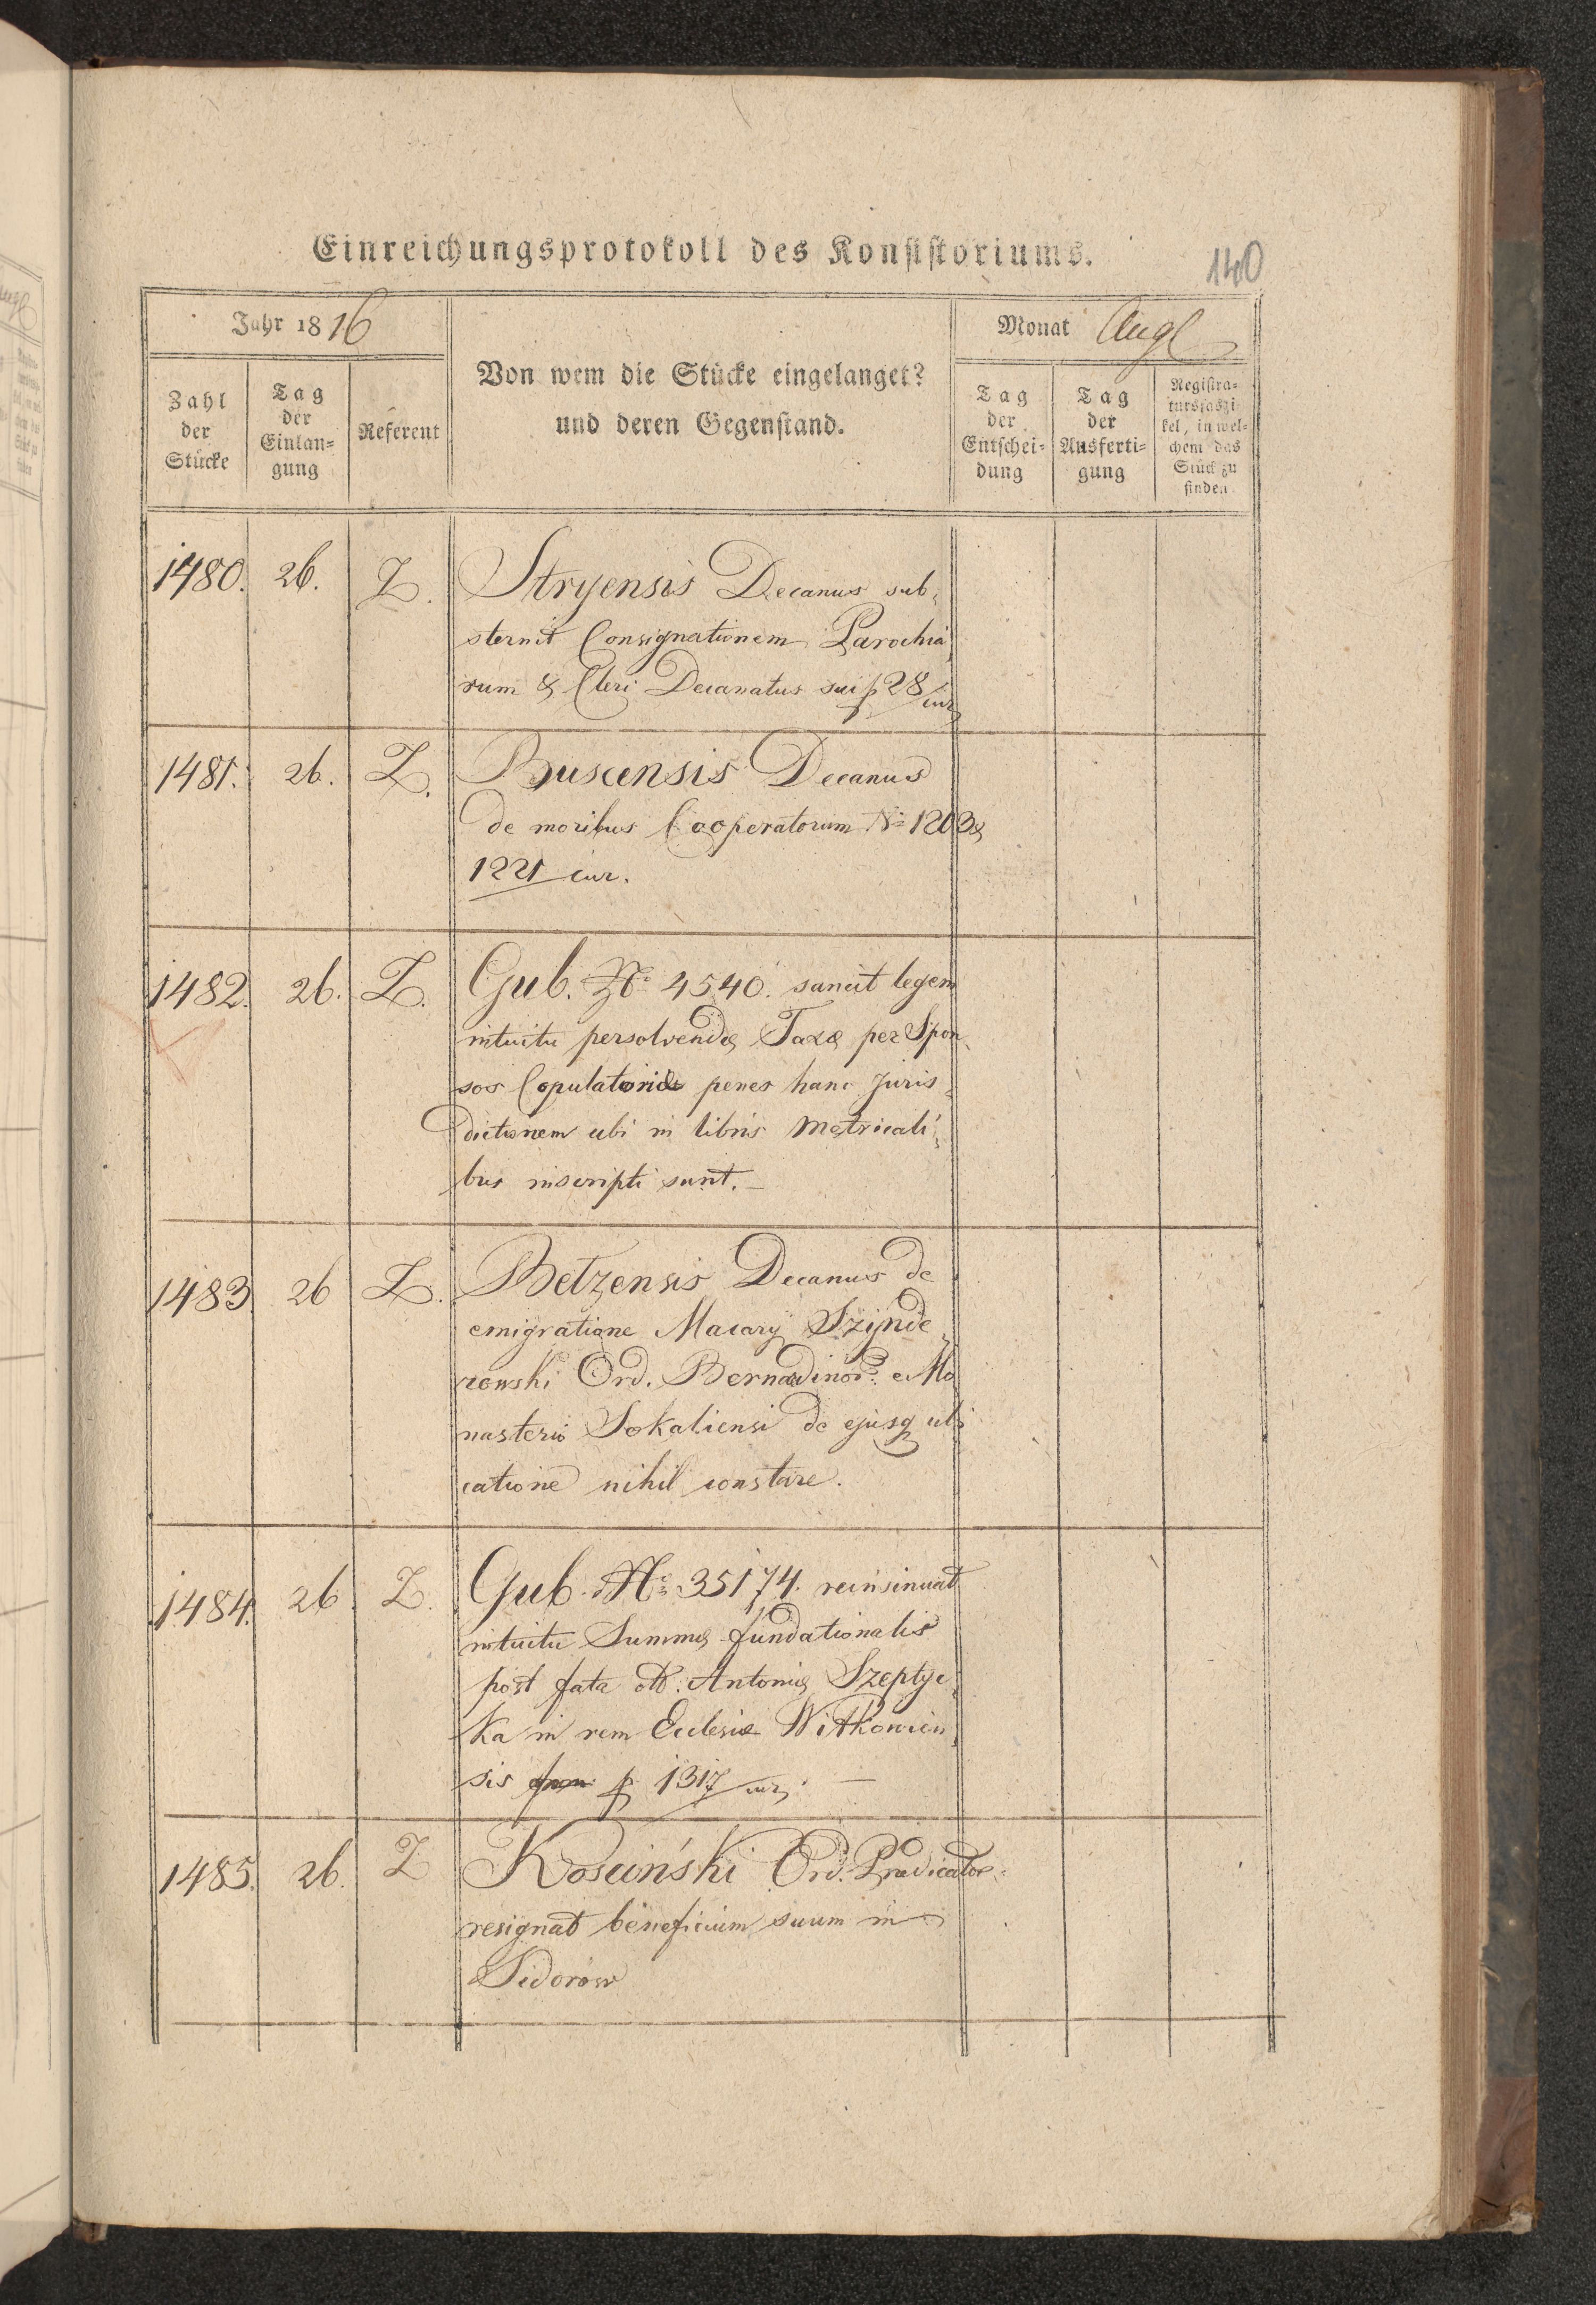 Einreichungsprotokoll des Konsistoriums.
140
Jahr 1816
Von wem die Stücke eingelanget?
und deren Gegenstand.
Monat Augl
Zahl
der
Stücke
Tag
der
Einlan=
gung
Referent
Tag
der
Entschei=
dung
Tag
der
Ausferti=
gung
Registra=
tursfaszi
kel, in wel=
chem das
Stück zu
finden
1480. 26. Z. Stryensis Decanus sub,
sternit Consignationem Parochia,
rum & Cleri Decanatus sui p 28/cur
1481. 26. Z. Buscensis Decanus
de moribus Cooperatorum No 1203 &
1221 cur.
1482. 26. Z. Gub. No 4540. sancit legem
intuitu persolvendæ Taxæ per Spon,
sos Copulatoriæ penes hanc Juris,
dictionem ubi in libris Metricali,
bus inscripti sunt.–
1483. 26 Z. Betzensis Decanus de
emigratione Macary Szynde,
rowski Ord. Bernadinor: e Mo
nasterio Sokaliensi de ejusq ubi
catione nihil constare.
1484. 26. Z. Gub. No 35174. reinsinuat
intuitu Summæ fundationalis
post fata Antoniæ Szeptyc,
ka in rem Ecclesiæ Witkowien,
sis p 1317/cur. –
1485. 26. Z Kosciński Ord. Prædicator.
resignat beneficium suum in
Sidorów